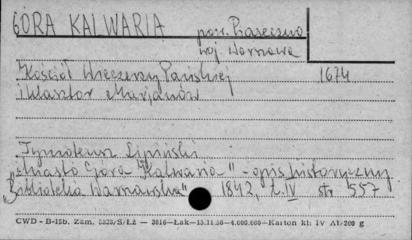 GÓRA KALWARIA pow. Piaseczno
woj. Warszawa
Kościół Wieczerzy Pańskiej 1674
i klasztor Marjanów
Tymoteusz Lipiński
"Miasto Góra Kalwaria" - opis historyczny
"Biblioteka Warszawska" 1842, t. IV str. 557
CWD - B-IIb. Zam. 5825/S/ŁŻ — 3816-Łak-15.11.56-4.000.000-Karton kl. IV A1/200 g